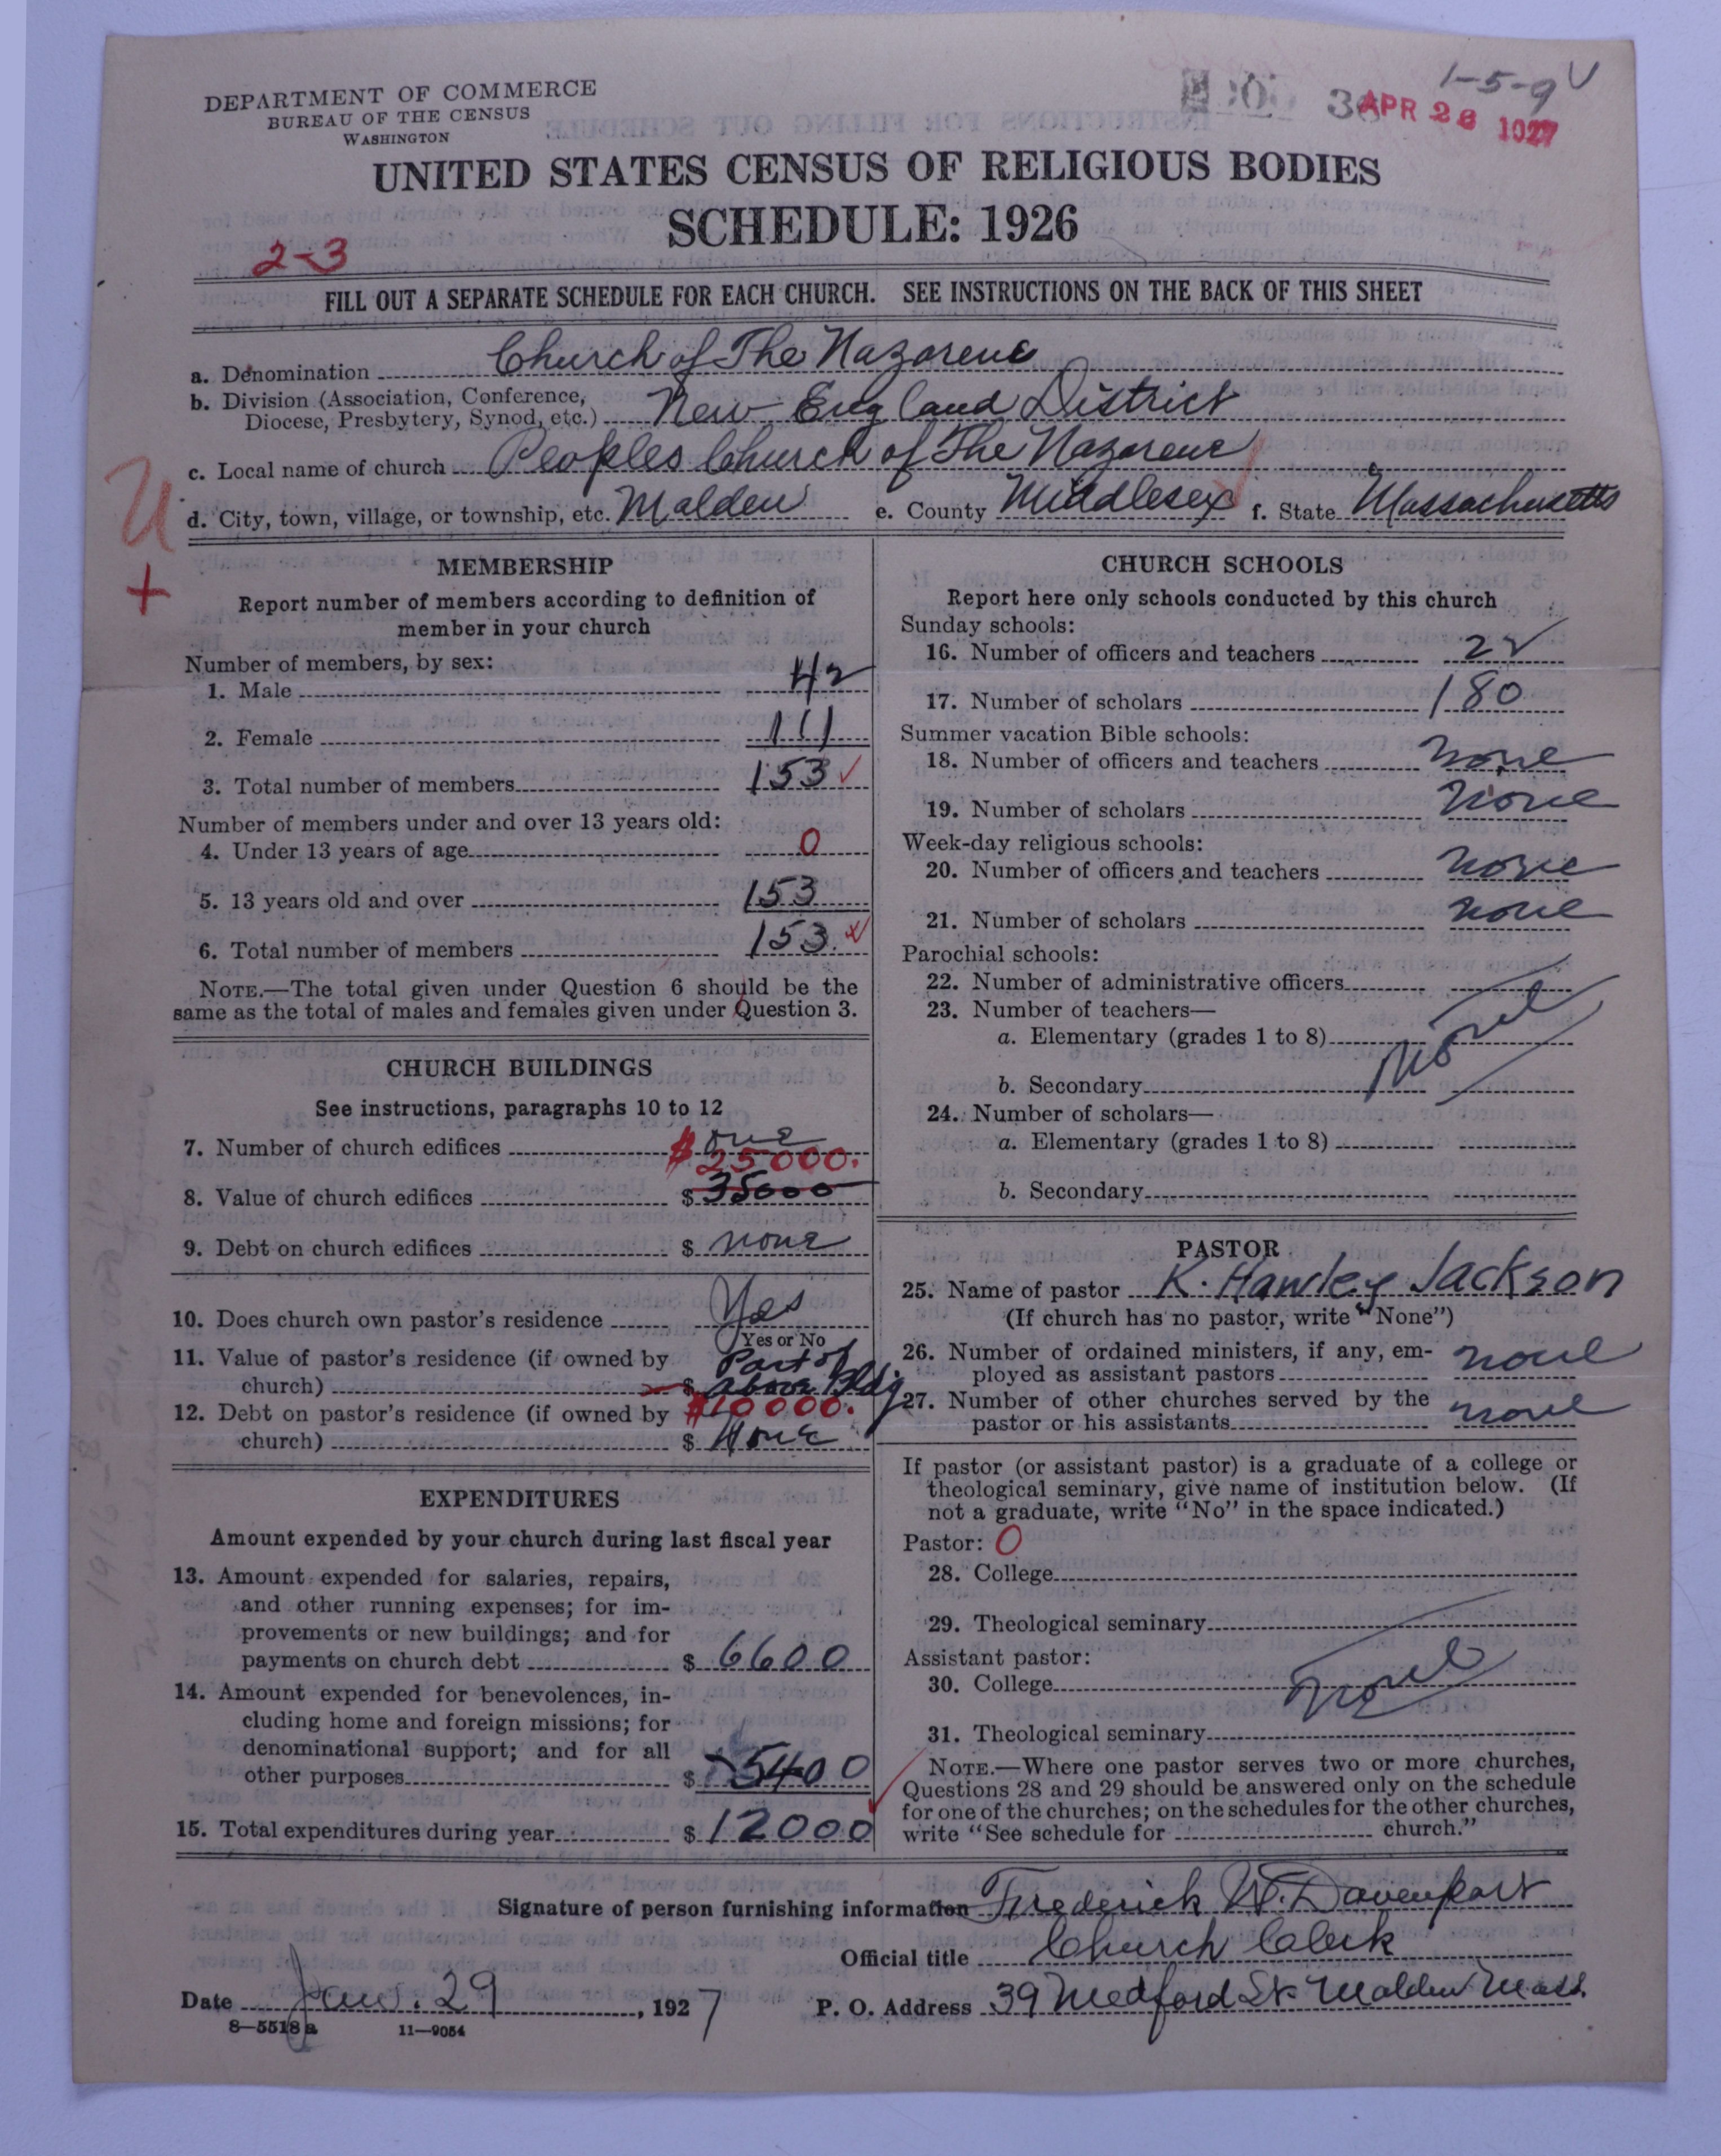 1-5-9
APR 28 1927
DEPARTMENT OF COMMERCE
BUREAU OF THE CENSUS
WASHINGTON
UNITED STATES CENSUS OF RELIGIOUS BODIES
SCHEDULE: 1926
2-3
FILL OUT A SEPARATE SCHEDULE FOR EACH CHURCH. SEE INSTRUCTIONS ON THE BACK OF THIS SHEET
a. Denomination Church of The Nazarene
b. Division (Association, Conference,
Diocese, Presbytery, Synod, etc.) New England District
c. Local name of church Peoples Church of The Nazarene
d. City, town, village, or township, etc. Malden e. County Middlesex f. State Massachusetts
U
+
MEMBERSHIP
Report number of members according to definition of
member in your church
Number of members, by sex:
1. Male 42
2. Female 111
3. Total number of members 153
Number of members under and over 13 years old:
4. Under 13 years of age 0
5. 13 years old and over 153
6. Total number of members 153.
NOTE.—The total given under Question 6 should be the
same as the total of males and females given under Question 3.
CHURCH BUILDINGS
See instructions, paragraphs 10 to 12
7. Number of church edifices one
$25000.
8. Value of church edifices $ 35000
9. Debt on church edifices $ none
10. Does church own pastor's residence Yes
Yes or No
11. Value of pastor's residence (if owned by
church) $ Part of above Bldg
$10000.
12. Debt on pastor's residence (if owned by
church) $ None
EXPENDITURES
Amount expended by your church during last fiscal year
13. Amount expended for salaries, repairs,
and other running expenses; for im-
provements or new buildings; and for
payments on church debt $ 6600
14. Amount expended for benevolences, in-
cluding home and foreign missions; for
denominational support; and for all
other purposes $ 5400
15. Total expenditures during year $ 12000
CHURCH SCHOOLS
Report here only schools conducted by this church
Sunday schools:
16. Number of officers and teachers 22
17. Number of scholars 180
Summer vacation Bible schools:
18. Number of officers and teachers none
19. Number of scholars none
Week-day religious schools:
20. Number of officers and teachers none
21. Number of scholars none
Parochial schools:
22. Number of administrative officers
23. Number of teachers—
a. Elementary (grades 1 to 8) none
b. Secondary
24. Number of scholars—
a. Elementary (grades 1 to 8)
b. Secondary
PASTOR
25. Name of pastor K. Hawley Jackson
(If church has no pastor, write "None")
26. Number of ordained ministers, if any, em-
ployed as assistant pastors none
27. Number of other churches served by the
pastor or his assistants none
If pastor (or assistant pastor) is a graduate of a college or
theological seminary, give name of institution below. (If
not a graduate, write "No" in the space indicated.)
Pastor: 0
28. College
29. Theological seminary
Assistant pastor:
30. College none
31. Theological seminary
NOTE.—Where one pastor serves two or more churches,
Questions 28 and 29 should be answered only on the schedule
for one of the churches; on the schedules for the other churches,
write "See schedule for church."
Signature of person furnishing information Frederick W. Davenport
Official title Church Clerk
Date Jan. 29, 1927 P. O. Address 39 Medford St Malden Mass.
8-5518 a 11-9054